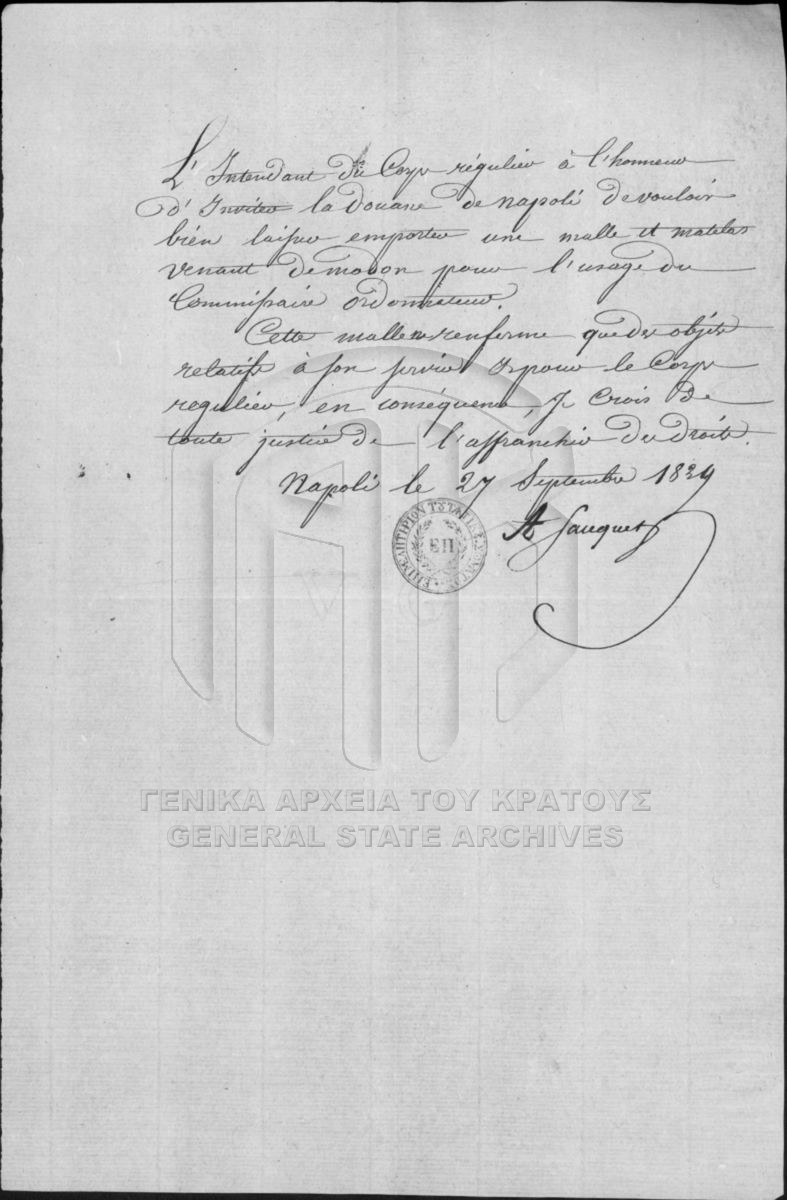 L'Intendant du Corps régulier à l'honneur
d'Inviter la douane de Napoli de vouloir
bien laisser emporter une malle et matelas
venant de modon pour l'usage du
Commissaire Ordonnateur.
Cette malle ne renferme que des objets
relatifs à son service et pour le Corps
regulier, en conséquence, je Crois de
toute justice de l'affranchir de droits.
Napoli le 27 Septembre 1829
A Sauquet
ΕΠΙΜΕΛΗΤΗΡΙΟΝ
ΓΕΝΙΚΑ ΑΡΧΕΙΑ ΤΟΥ ΚΡΑΤΟΥΣ
GENERAL STATE ARCHIVES